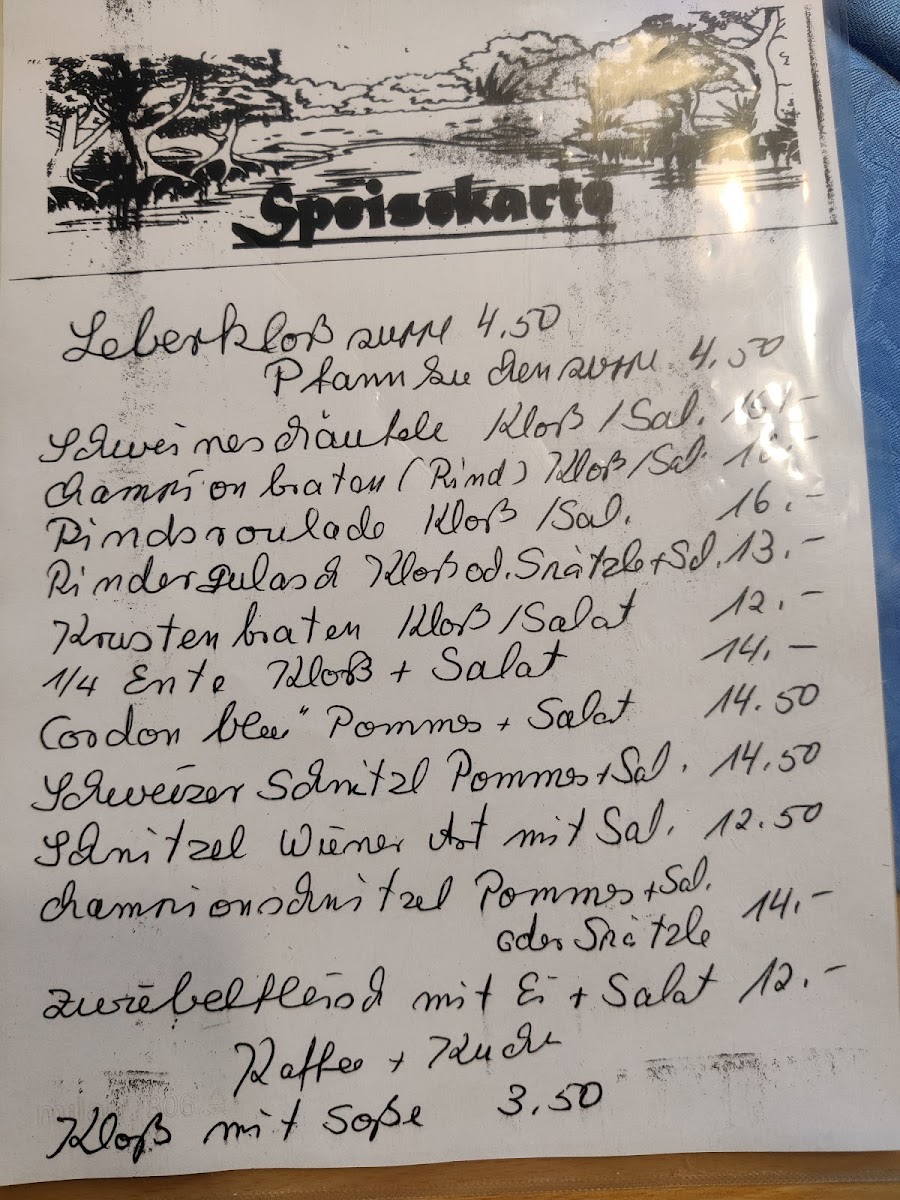 Speisekarte
Leberkloßsuppe 4.50
Pfannkuchensuppe 4.50
Schweineschäufele Kloß / Sal.
Champion braten (Rind) Kloß / Sal.
Rindsroulade Kloß / Sal. 16.-
Rindergulasch Kloß od. Spätzle + Sal. 13.-
Krustenbraten Kloß / Salat 12.-
1/4 Ente Kloß + Salat 14.-
Cordon bleu" Pommes + Salat 14.50
Schweizer Schnitzl Pommes + Sal. 14.50
Schnitzel Wiener Art mit Sal. 12.50
Championschnitzel Pommes + Sal.
oder Spätzle 14.-
Zwiebelfleisch mit Ei + Salat 12.-
Kaffee + Kuchen
Kloß mit Soße 3.50